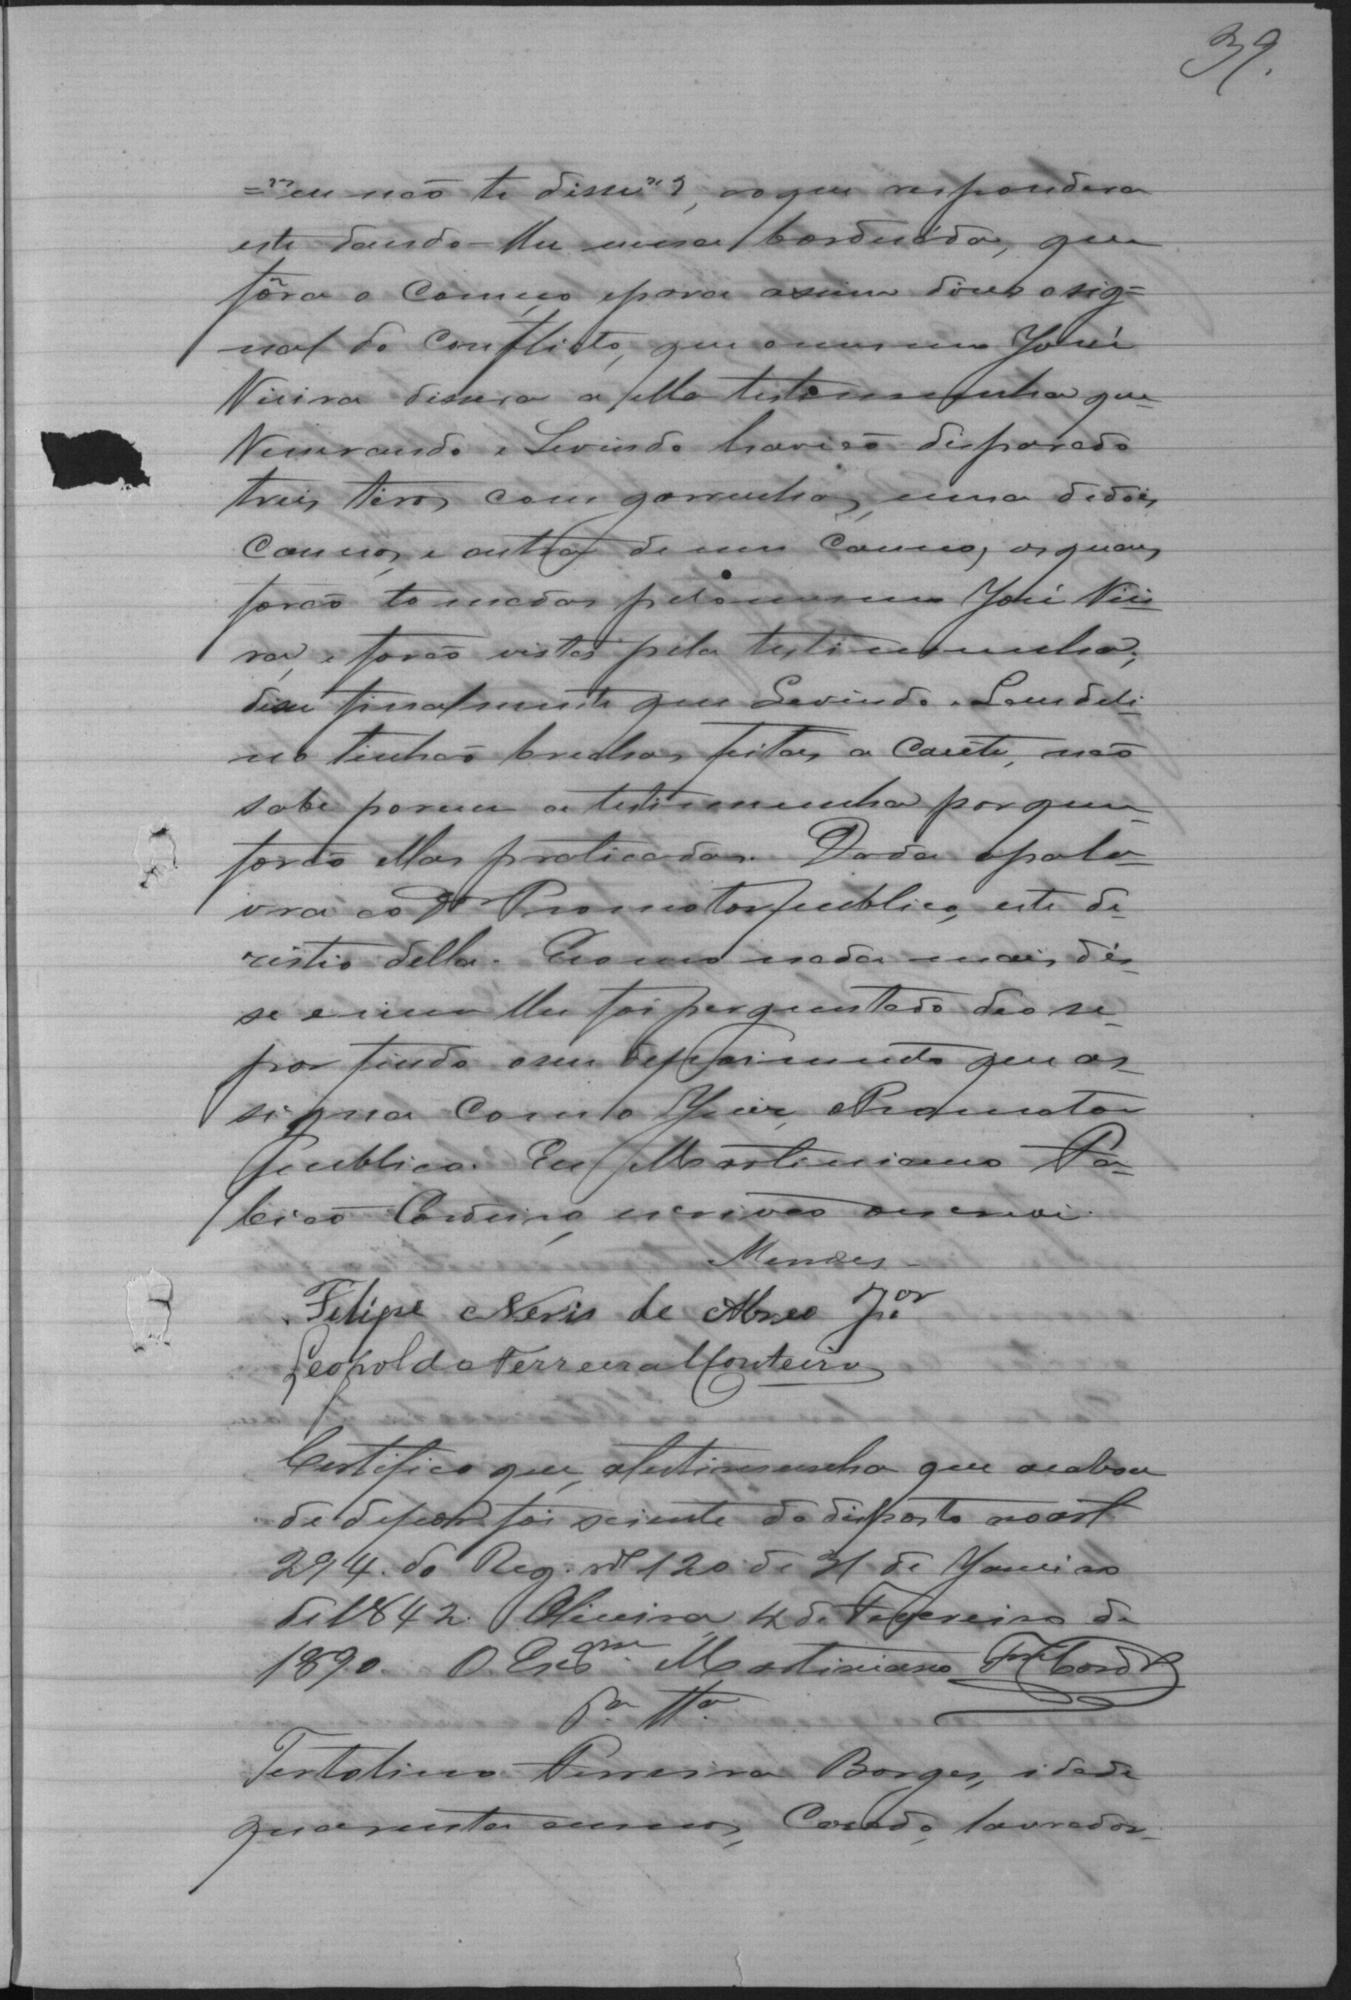 39.
="eu não te disse"?, ao que respondera
este dando-lhe uma bordoáda, que
fôra o começo, e para assim dizer o sig=
nal do conflicto, que o mesmo José
Vieira dissera a ella testemunha que
Nemrando e Levindo haviaõ disparado
treis tiros com garruchas, uma de dois
cannos, e outra de um canno, as quaes
foraõ tomadas pelo mesmo José Viei
ra, e foraõ vistas pela testimunha,
disse finalmente que Levindo e Laudeli-
no tinhaõ brechas feitas a cacête, naõ
sabe porem a testimunha por quem
foraõ ellas praticadas. Dada a pala-
vra ao Dr Promotor publico, este de-
zistio della. E como nada mais dis-
se e nem lhe foi perguntado deo se
por findo o seu depoimento que as-
signa com o Juiz, e Promotor
publico. Eu Martiniano
Cordeiro, escrivaõ o escrevi.
Mendes
Felipe Neris de Abreo Jor
Leopoldo Ferreira Monteiro
Certifico que, a testimunha que acabou
de depor foi sciente do disposto no art
294. do Reg. nº 120 de 31 de Janeiro
de 1842. Oliveira, 4 de Fevereiro de
1890. O Escm. Martiniano
5a tta
Tertolino Ferreira Borges, idade
quarenta annos, casado, lavrador